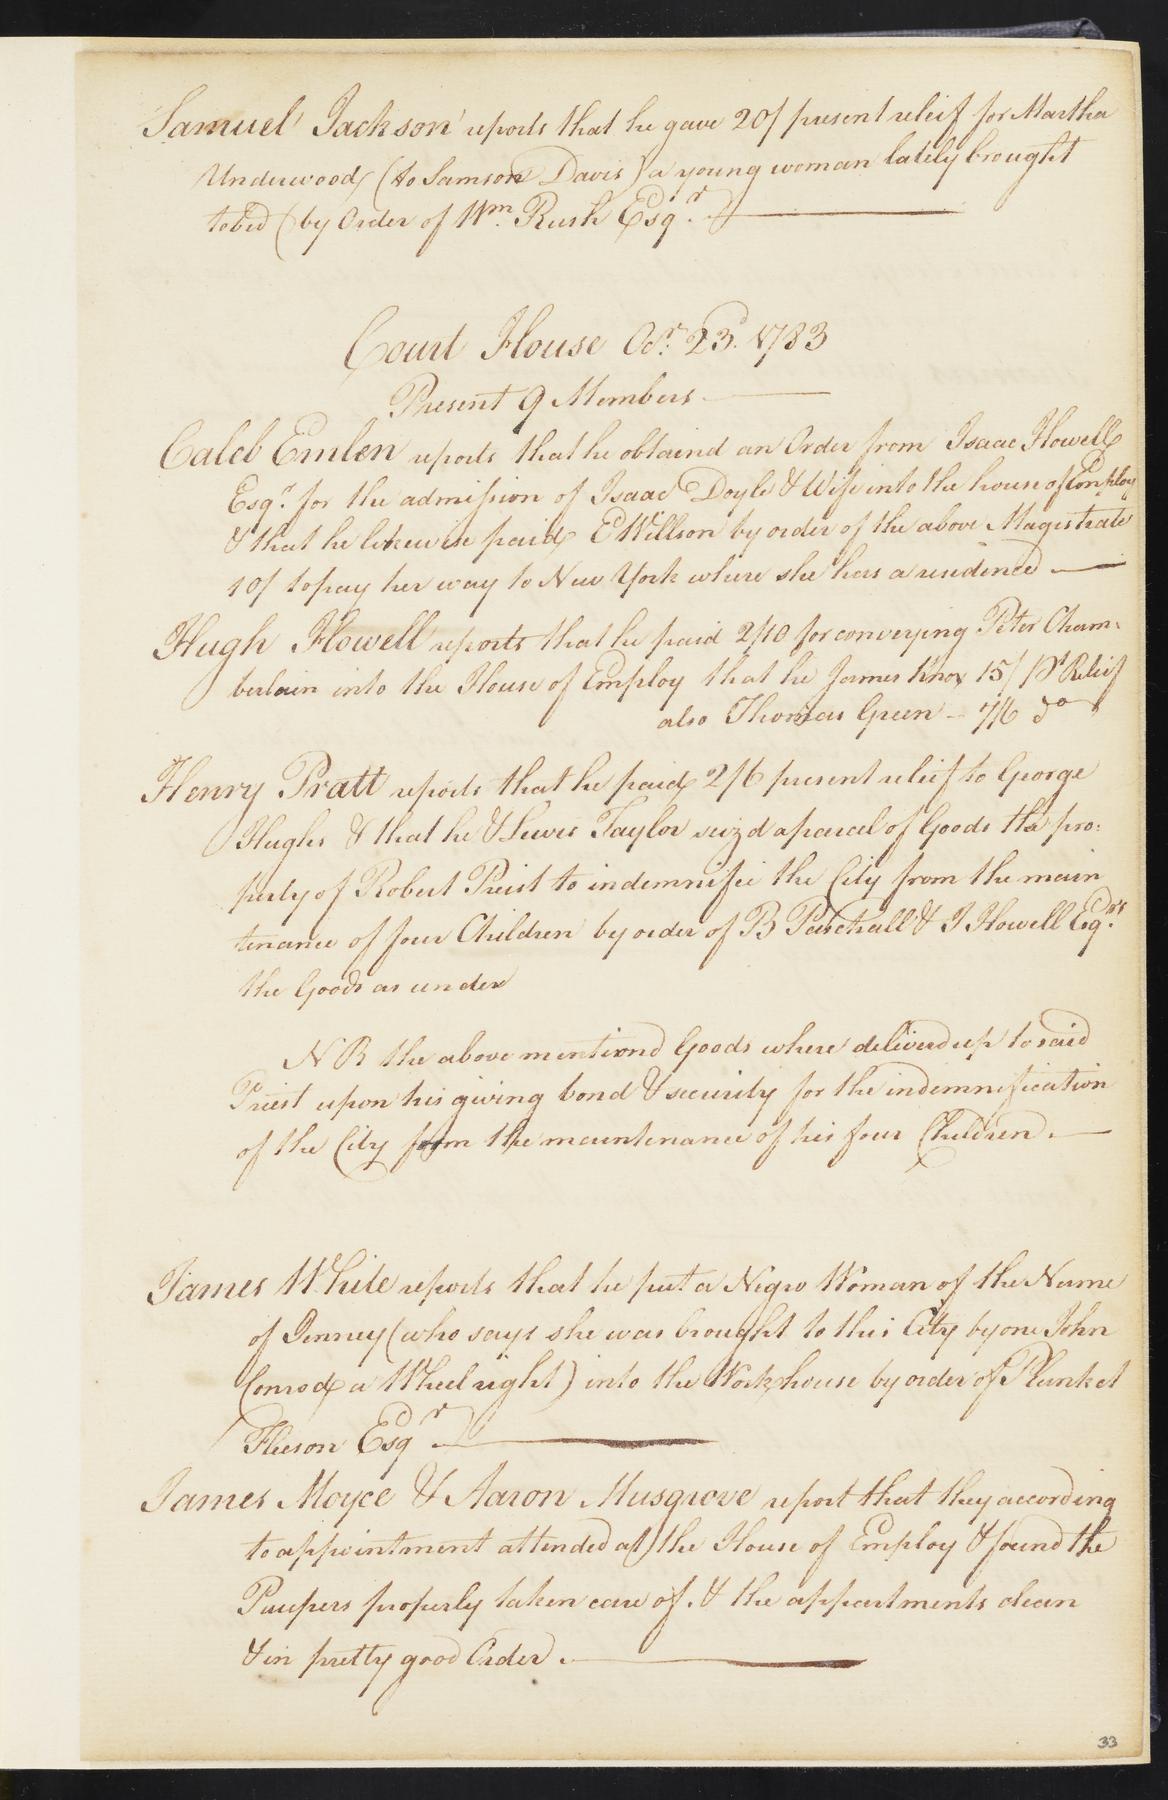 Samuel Jackson reports that he gave 20/ present releif for Martha
Underwood (to Samson Davis) a young woman lately brought
to bed (by Order of Wm. Rush Esqr.
Court House Or. 23d. 1783
Present 9 Members
Caleb Emlen reports that he obtaind an Order from Isaac Howell
Esqr. for the admission of Isaac Doyle & Wife into the house of Employ
& that he likewise paid E Willson by order of the above Magistrate
10/ to pay her way to New York where she has a residence
Hugh Howell reports that he paid 2/10 for conveying Peter Cham:
berlain into the House of Employ that he James Knox 15/ Pt Relief
also Thomas Green - 7/6 do
Henry Pratt reports that he paid 2/6 present releif to George
Hughs & that he & Lewis Taylor seizd a parcel of Goods the pro:
perty of Robert Preist to indemnifie the City from the main
tenance of four Children by order of B Paschall & I Howell Esqrs.
the Goods as under
N B the above mentiond Goods where deliverd up to said
Priest upon his giving bond & security for the indemnification
of the City from the maintenance of his four Children.
James White reports that he put a Negro Woman of the Name
of Jenney (who says she was brought to this City by one John
Conrod a Wheelright) into the Workhouse by order of Plunket
Fleeson Esqr.
James Moyce & Aaron Musgrove report that they according
to appointment attended at the House of Employ & found the
Paupers properly taken care of. & the appartments clean
& in pretty good Order.
33